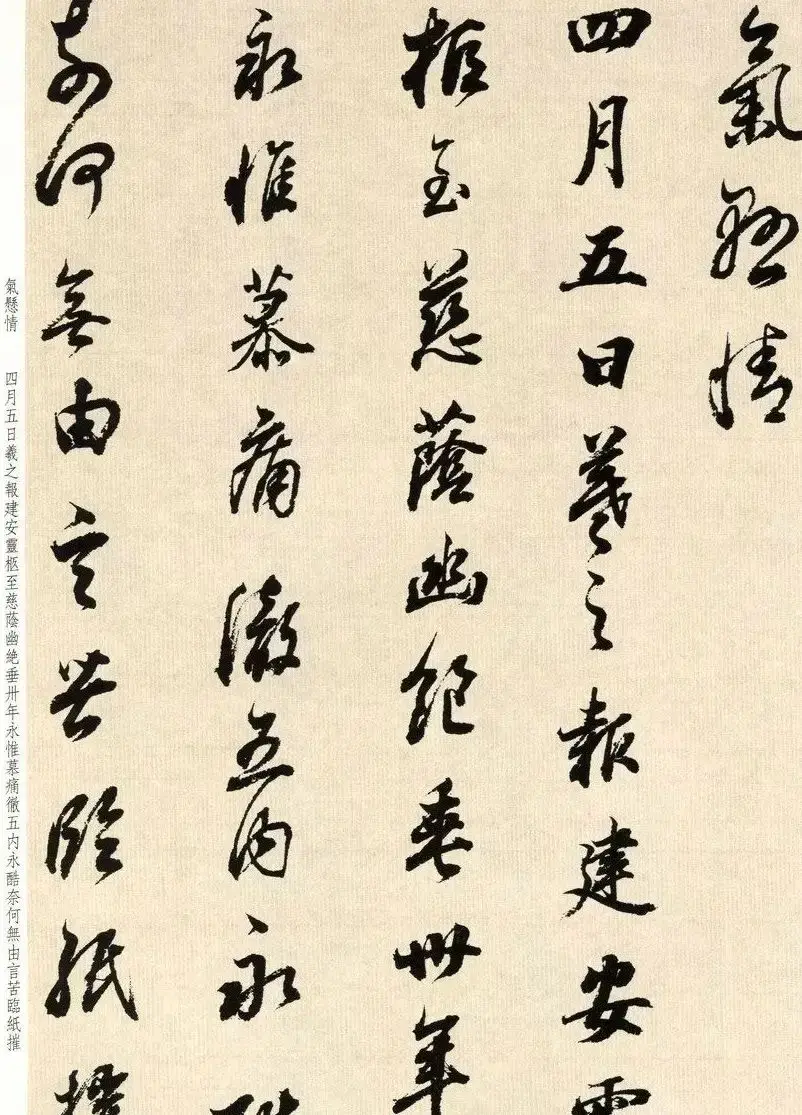 氣懸情
四月五日羲之報建安靈
柩至慈蔭幽絶垂卅年
永惟慕痛徹五内永酷
奈何無由言苦臨紙摧
氣懸情　四月五日羲之報建安靈柩至慈蔭幽絶垂卅年永惟慕痛徹五内永酷奈何無由言苦臨紙摧